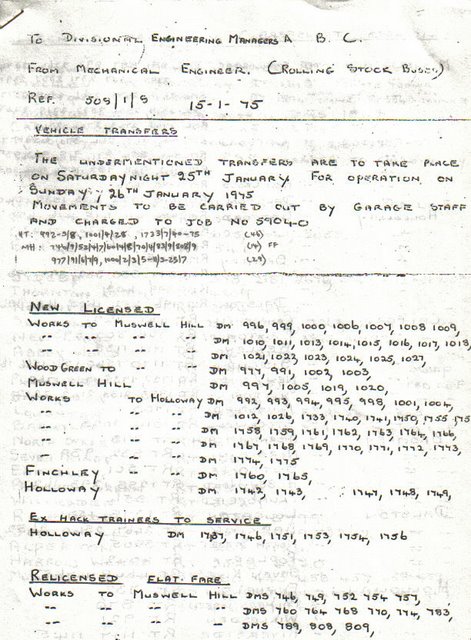 TO DIVISIONAL ENGINEERING MANAGERS A B. C.
FROM MECHANICAL ENGINEER. (ROLLING STOCK BUSES)
REF. 505/1/S 15-1-75
VEHICLE TRANSFERS
THE UNDERMENTIONED TRANSFERS ARE TO TAKE PLACE
ON SATURDAY NIGHT 25TH JANUARY FOR OPERATION ON
SUNDAY, 26TH JANUARY 1975
MOVEMENTS TO BE CARRIED OUT BY GARAGE STAFF
AND CHARGED TO JOB NO 5904-0
HT: 992-5/8, 1001/4/26, (46)
MH: (14) FF
(29)
NEW LICENSED
WORKS TO MUSWELL HILL DM 996, 999, 1000, 1006, 1007, 1008 1009,
-- -- -- DM 1010, 1011, 1013, 1014, 1015, 1016, 1017, 1018,
-- -- -- DM 1021, 1022, 1023, 1024, 1025, 1027,
WOOD GREEN TO -- -- DM 977, 991, 1002, 1003,
MUSWELL HILL DM 997, 1005, 1019, 1020,
WORKS TO HOLLOWAY DM 992, 993, 994, 995, 998, 1001, 1004,
-- -- -- DM 1012, 1026, 1733, 1740, 1741, 1750, 1755
-- -- -- DM 1758, 1759, 1761, 1762, 1763, 1764, 1766,
-- -- -- DM 1767, 1768, 1769, 1770, 1771, 1772, 1773,
-- -- -- DM 1774, 1775
FINCHLEY -- -- DM 1760, 1765,
HOLLOWAY DM 1742, 1743, 1747, 1748, 1749,
EX HACK TRAINERS TO SERVICE
HOLLOWAY DM 1737, 1746, 1751, 1753, 1754, 1756
RELICENSED FLAT FARE
WORKS TO MUSWELL HILL DMS 746, 749, 752 754 757,
-- -- -- DMS 760 764 768 770, 774, 783,
-- -- -- DMS 789, 808, 809,